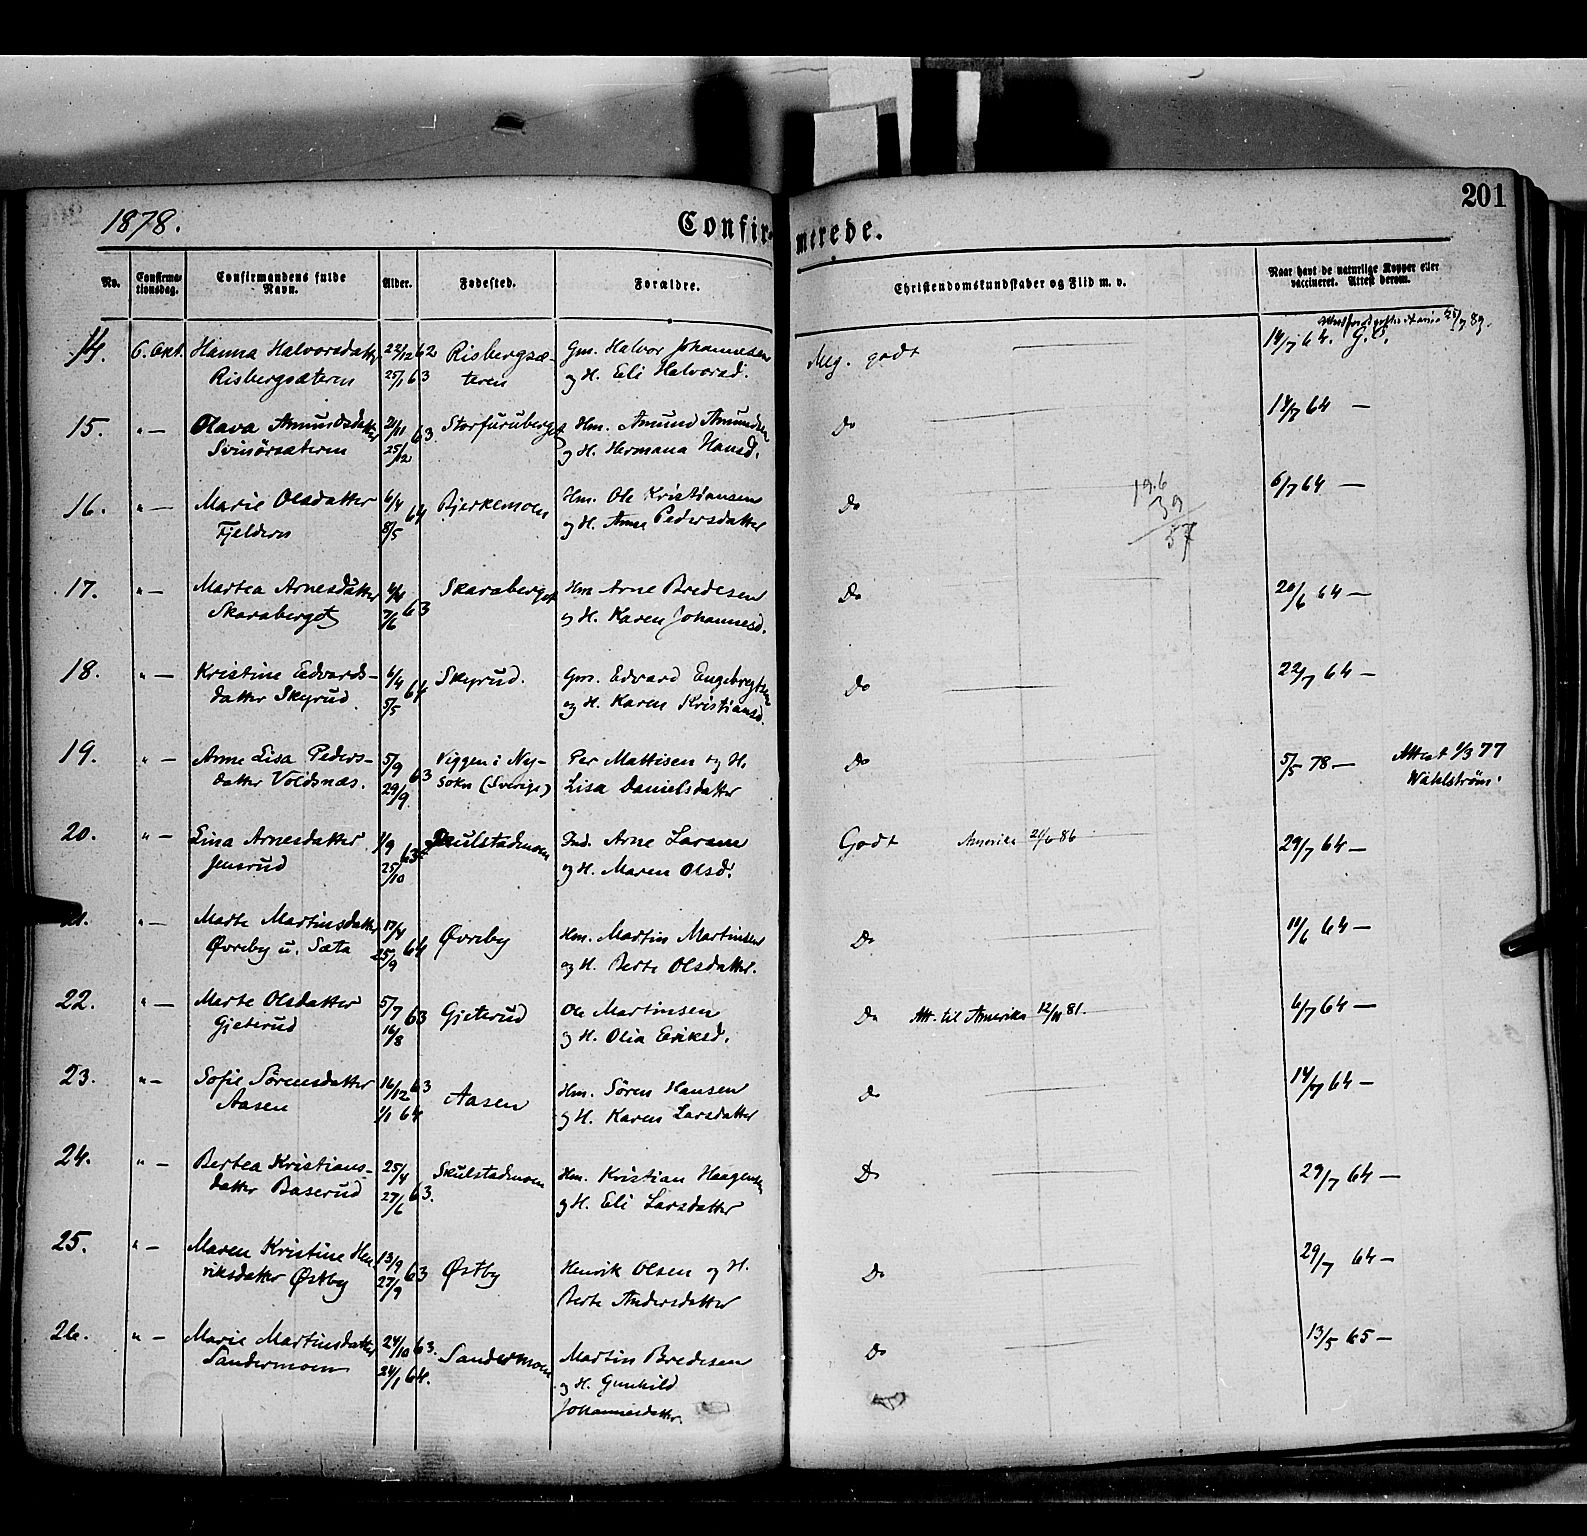 1878.
Confir-
merede.
201
No.
Confirma-
tionsdag.
Confirmandens fulde
Navn.
Alder.
Fødested.
Forældre.
Christendomskundskaber og Flid m. v.
Naar havt de naturlige Kopper eller
vaccineret. Attest derom.
14. 6. Okt. Hanna Halvorsdatter 22/12 62 Risbergsæ- Gm. Halvor Johannesen Meg. godt — 14/7 64. G.S.
Risbergsæteren 25/1 63 teren og H. Eli Halvorsd.
15. " — Olava Amundsdatter 21/11 63. Storfuruberget Hm. Amund Amundsen Do — 14/7 64 —
Svinörsæteren 25/12 og H. Hermana Hansd.
19.6
39
57
16. " — Marie Olsdatter 6/4 64 Bjerkemoen Hm. Ole Kristiansen Do — 6/7 64 —
Fjelderen 8/5 og H. Anne Pedersdatter
17. " — Martea Arnesdatter 4/4 63 Skaraberget Hm Arne Bredesen Do — 20/6 64 —
Skaraberget 7/6 og H. Karen Johannesd.
18. " — Kristine Edvards- 6/4 64 Skyrud. Gm. Edvard Engebregtsen Do — 22/7 64 —
datter Skyrud. 5/5 og H. Karen Kristiansd.
19. " — Anne Lisa Peders- 5/9 63 Viggen i Ny- Per Mattisen og H. Do 5/5 78 — Attest 1/3 77
datter Voldsnæs. 29/9. sokn (Sverige) Lisa Danielsdatter Wahlström.
20. " — Lina Arnesdatter 1/9 63 Skulstadmoen Ind. Arne Larsen Godt Amerika 21/6 86 29/7 64 —
Jensrud 25/10 og H. Maren Olsd.
21. " — Marte Martinsdatter 17/4 64 Øvreby Hm. Martin Martinsen Do — 11/6 64 —
Øvreby u. Sæta 25/9 og H. Berte Olsdatter.
22. " — Marte Olsdatter 5/7 63 Gjeterud Ole Martinsen Do Att. til Amerika 12/11 81. 6/7 64 —
Gjeterud 16/8 og H. Olia Eriksd.
23. " — Sofie Sörensdatter 16/12 63 Aasen Hm. Sören Hansen Do — 14/7 64 —
Aasen 1/1 64 og H. Karen Larsdatter
24. " — Bertea Kristians- 25/4 63. Skulstadmoen Hm. Kristian Haagensen Do — 29/7 64 —
datter Baserud 27/6 og H. Eli Larsdatter
25. " — Maren Kristine Hen- 13/9 63 Østby Henrik Olsen og H. Do — 29/7 64 —
riksdatter Østby 27/9 Berte Andersdatter
26. " — Marie Martinsdatter 24/10 63. Sandermoen Martin Bredesen Do — 13/5 65 —
Sandermoen 24/1 64. og H. Gunhild
Johannesdatter.